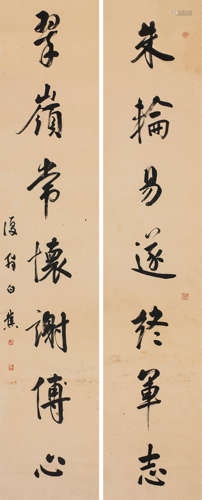 朱輪易遂終軍志
翠嶺常懷謝傅心
復翁白蕉